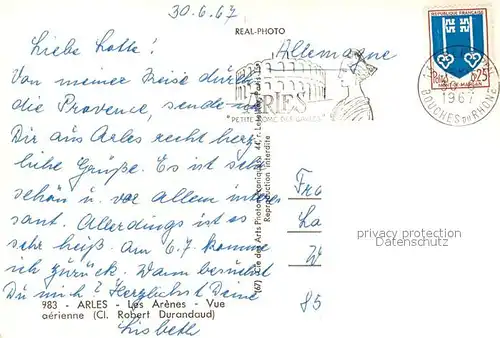 30.6.67
REAL-PHOTO
Allemagne
REPUBLIQUE FRANÇAISE
0,25
MONT-DE-MARSAN
1967
BOUCHES DU RHONE
ARLES
"PETITE ROME DES GAULES"
Liebe Lotte!
Von meiner Reise durch
die Provence, sende ich
Dir aus Arles recht herz-
liche Grüße. Es ist sehr
schön u. vor allem interes
sant. Allerdings ist es
sehr heiß. Am 6.7. komme
ich zurück. Wann besuchst
Du mich? Herzlichst Deine
Lisbeth
983 - ARLES - Les Arènes - Vue
aérienne (Cl. Robert Durandaud)
(67) Cie des Arts Photomécaniques 44, r. Letellier, Paris 15e
Reproduction interdite
Fra
La
W
85
privacy protection
Datenschutz